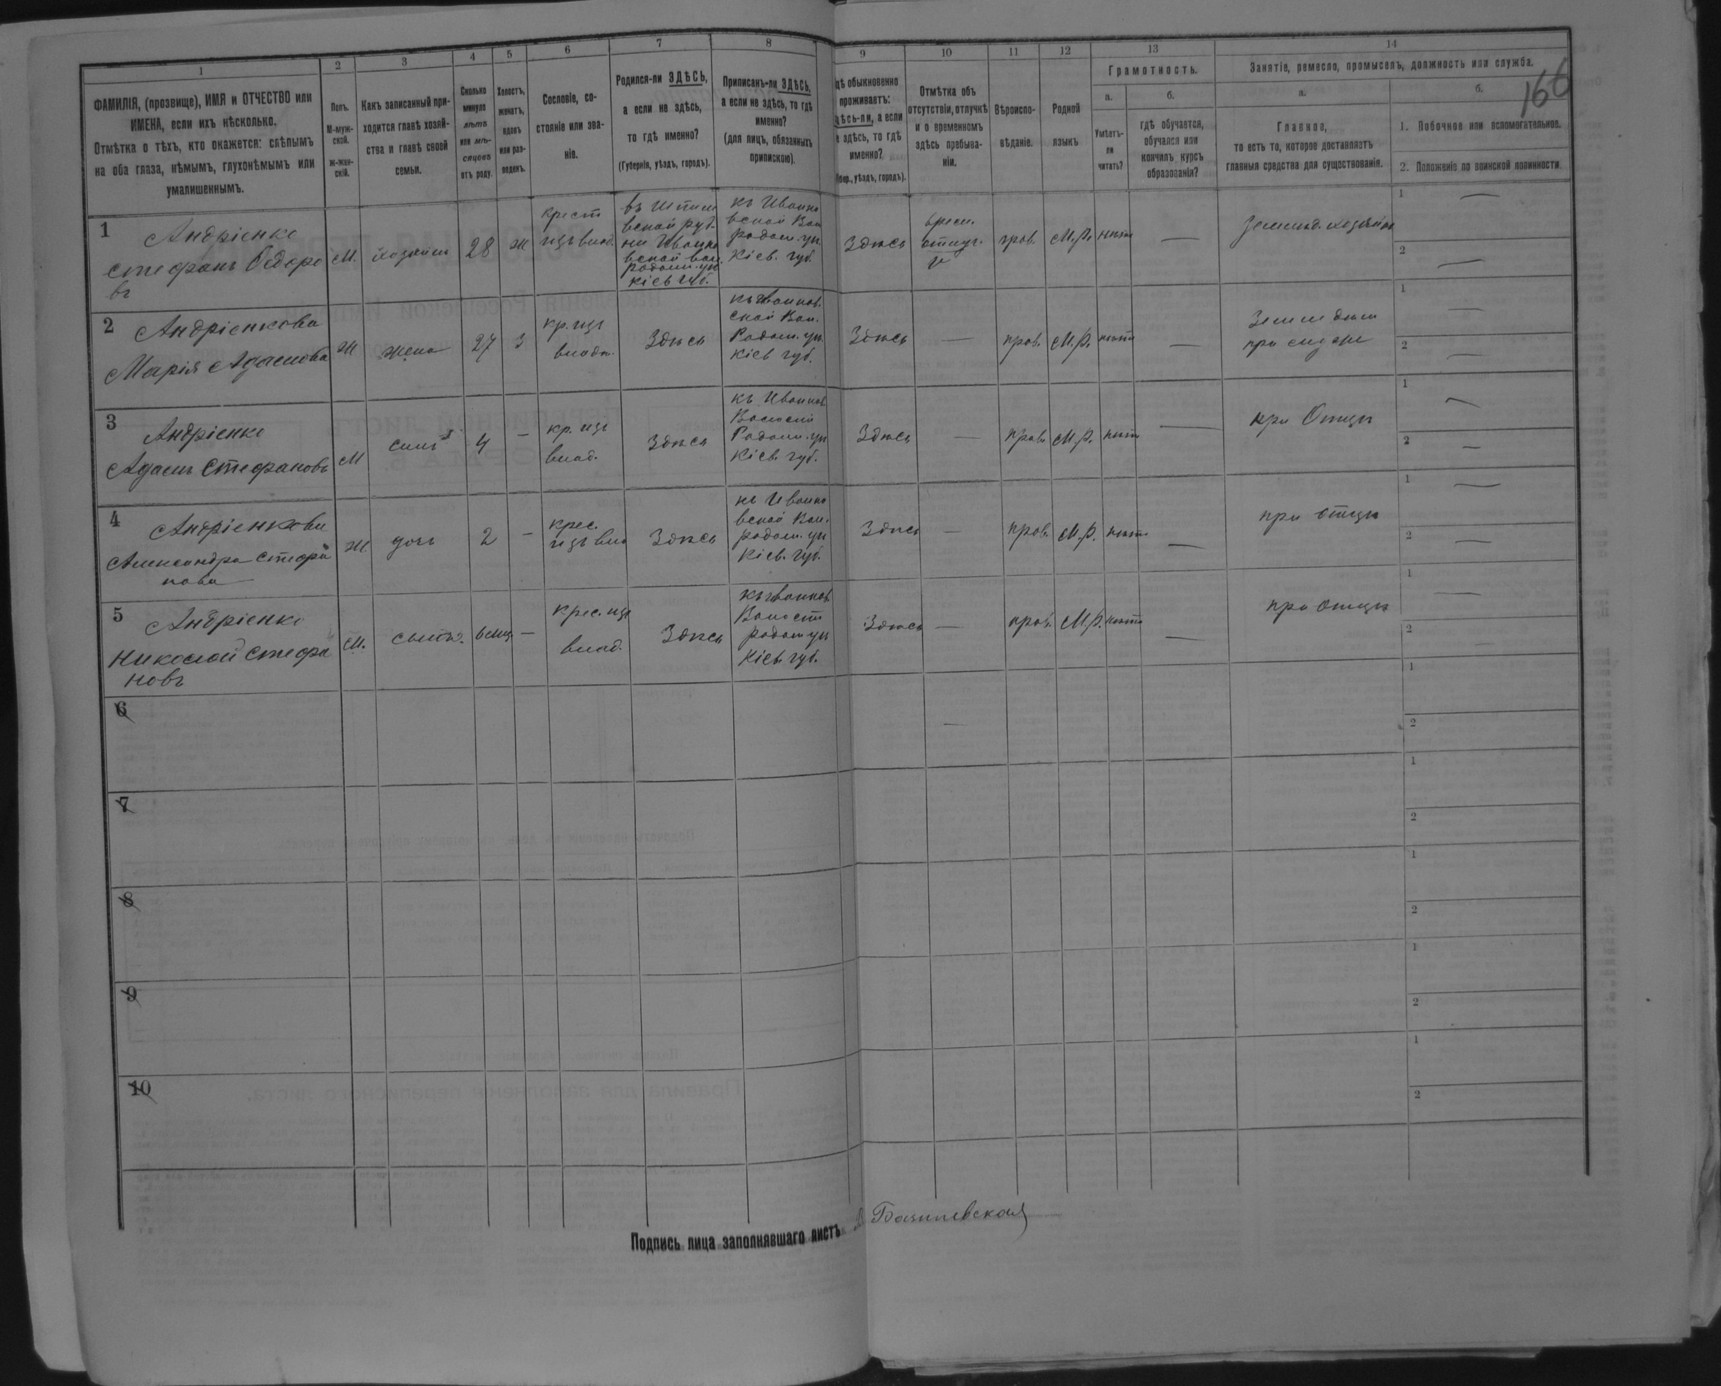 1
2
3
4
5
6
7
8
9
10
11
12
13
14
ФАМИЛІЯ, (прозвище), ИМЯ и ОТЧЕСТВО или
ИМЕНА, если ихъ нѣсколько.
Отмѣтка о тѣхъ, кто окажется: слѣпымъ
на оба глаза, нѣмымъ, глухонѣмымъ или
умалишеннымъ.
Полъ.
М-муж-
ской.
Ж-жен-
скій.
Какъ записанный при-
ходится главѣ хозяй-
ства и главѣ своей
семьи.
Сколько
минуло
лѣтъ
или мѣ-
сяцевъ
отъ роду.
Холостъ,
женатъ,
вдовъ
или раз-
веденъ.
Сословіе, со-
стояніе или зва-
ніе.
Родился-ли ЗДѢСЬ,
а если не здѣсь,
то гдѣ именно?
(Губернія, уѣздъ, городъ).
Приписанъ-ли ЗДѢСЬ,
а если не здѣсь, то гдѣ
именно?
(для лицъ, обязанныхъ
припискою).
дѣ обыкновенно
проживаетъ:
здѣсь-ли, а если
е здѣсь, то гдѣ
именно?
бер., уѣздъ, городъ).
Отмѣтка объ
отсутствіи, отлучкѣ
и о временномъ
здѣсь пребыва-
ніи.
Вѣроиспо-
вѣданіе.
Родной
языкъ
Грамотность.
а.
б.
Умѣетъ-
ли
читать?
гдѣ обучается,
обучался или
кончилъ курсъ
образованія?
Занятіе, ремесло, промыселъ, должность или служба.
166
а.
б.
Главное,
то есть то, которое доставляетъ
главныя средства для существованія.
1. Побочное или вспомогательное.
2. Положеніе по воинской повинности
1 Андріенко
Стефанъ Федоро
въ
М.
хозяинъ
28
ж
крест
изъ влад.
кіев губ.
къ Иванко
вской Вол
радом. уѣ
Кіев. губ.
Здѣсь
врем.
отлуч.
прав.
М.Р.
нѣтъ
1
2
2 Андріенкова
Марія Адамова
Ж
жена
27
з
кр. изъ
влад.
Здѣсь
къ Иванков.
ской Вол.
Радом. уѣ
Кіев губ.
Здѣсь
прав.
М.Р.
нѣтъ
Земледѣл
при мужѣ
1
2
3 Андріенко
Адамъ Стефановъ
М
сынъ
4
кр. изъ
влад.
Здѣсь
къ Иванков
Волости
Радом. уѣ
Кіев. губ.
Здѣсь
прав.
М.Р.
нѣтъ
при Отцѣ
1
2
4 Андріенкова
Александра Стефа
нова
Ж
дочь
2
крес.
изъ вла
Здѣсь
къ Иванко
вской Вол.
радом. уѣ
Кіев. губ.
Здѣсь
прав.
М.Р.
нѣтъ
при отцѣ
1
2
5 Андріенко
Николай Стефа
новъ
М.
сынъ
6 мѣц
крес. изъ
влад.
Здѣсь
къ Иванков
Волост
радом уѣ
Кіев. губ.
Здѣсь
прав.
М.Р.
нѣтъ
при отцѣ
1
2
6
1
2
7
1
2
8
1
2
9
1
2
10
1
2
Подпись лица заполнявшаго листъ